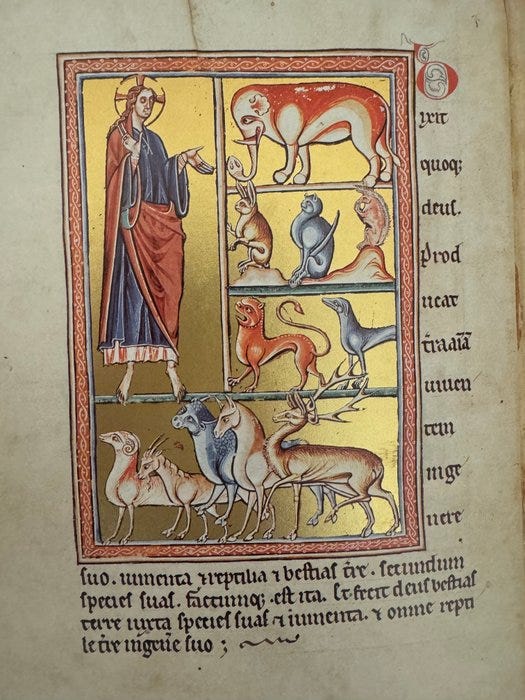 D
ixit
quoq;
deus.
Prod
ucat
t̄ra aīā
uiuen
tem
inge
nere
suo. iumenta ⁊ reptilia ⁊ bestias t̄re. secundum
species suas. factumq; est ita. Et fecit deus bestias
terre iuxta species suas ⁊ iumenta. ⁊ omne repti
le t̄re ingenere suo ;